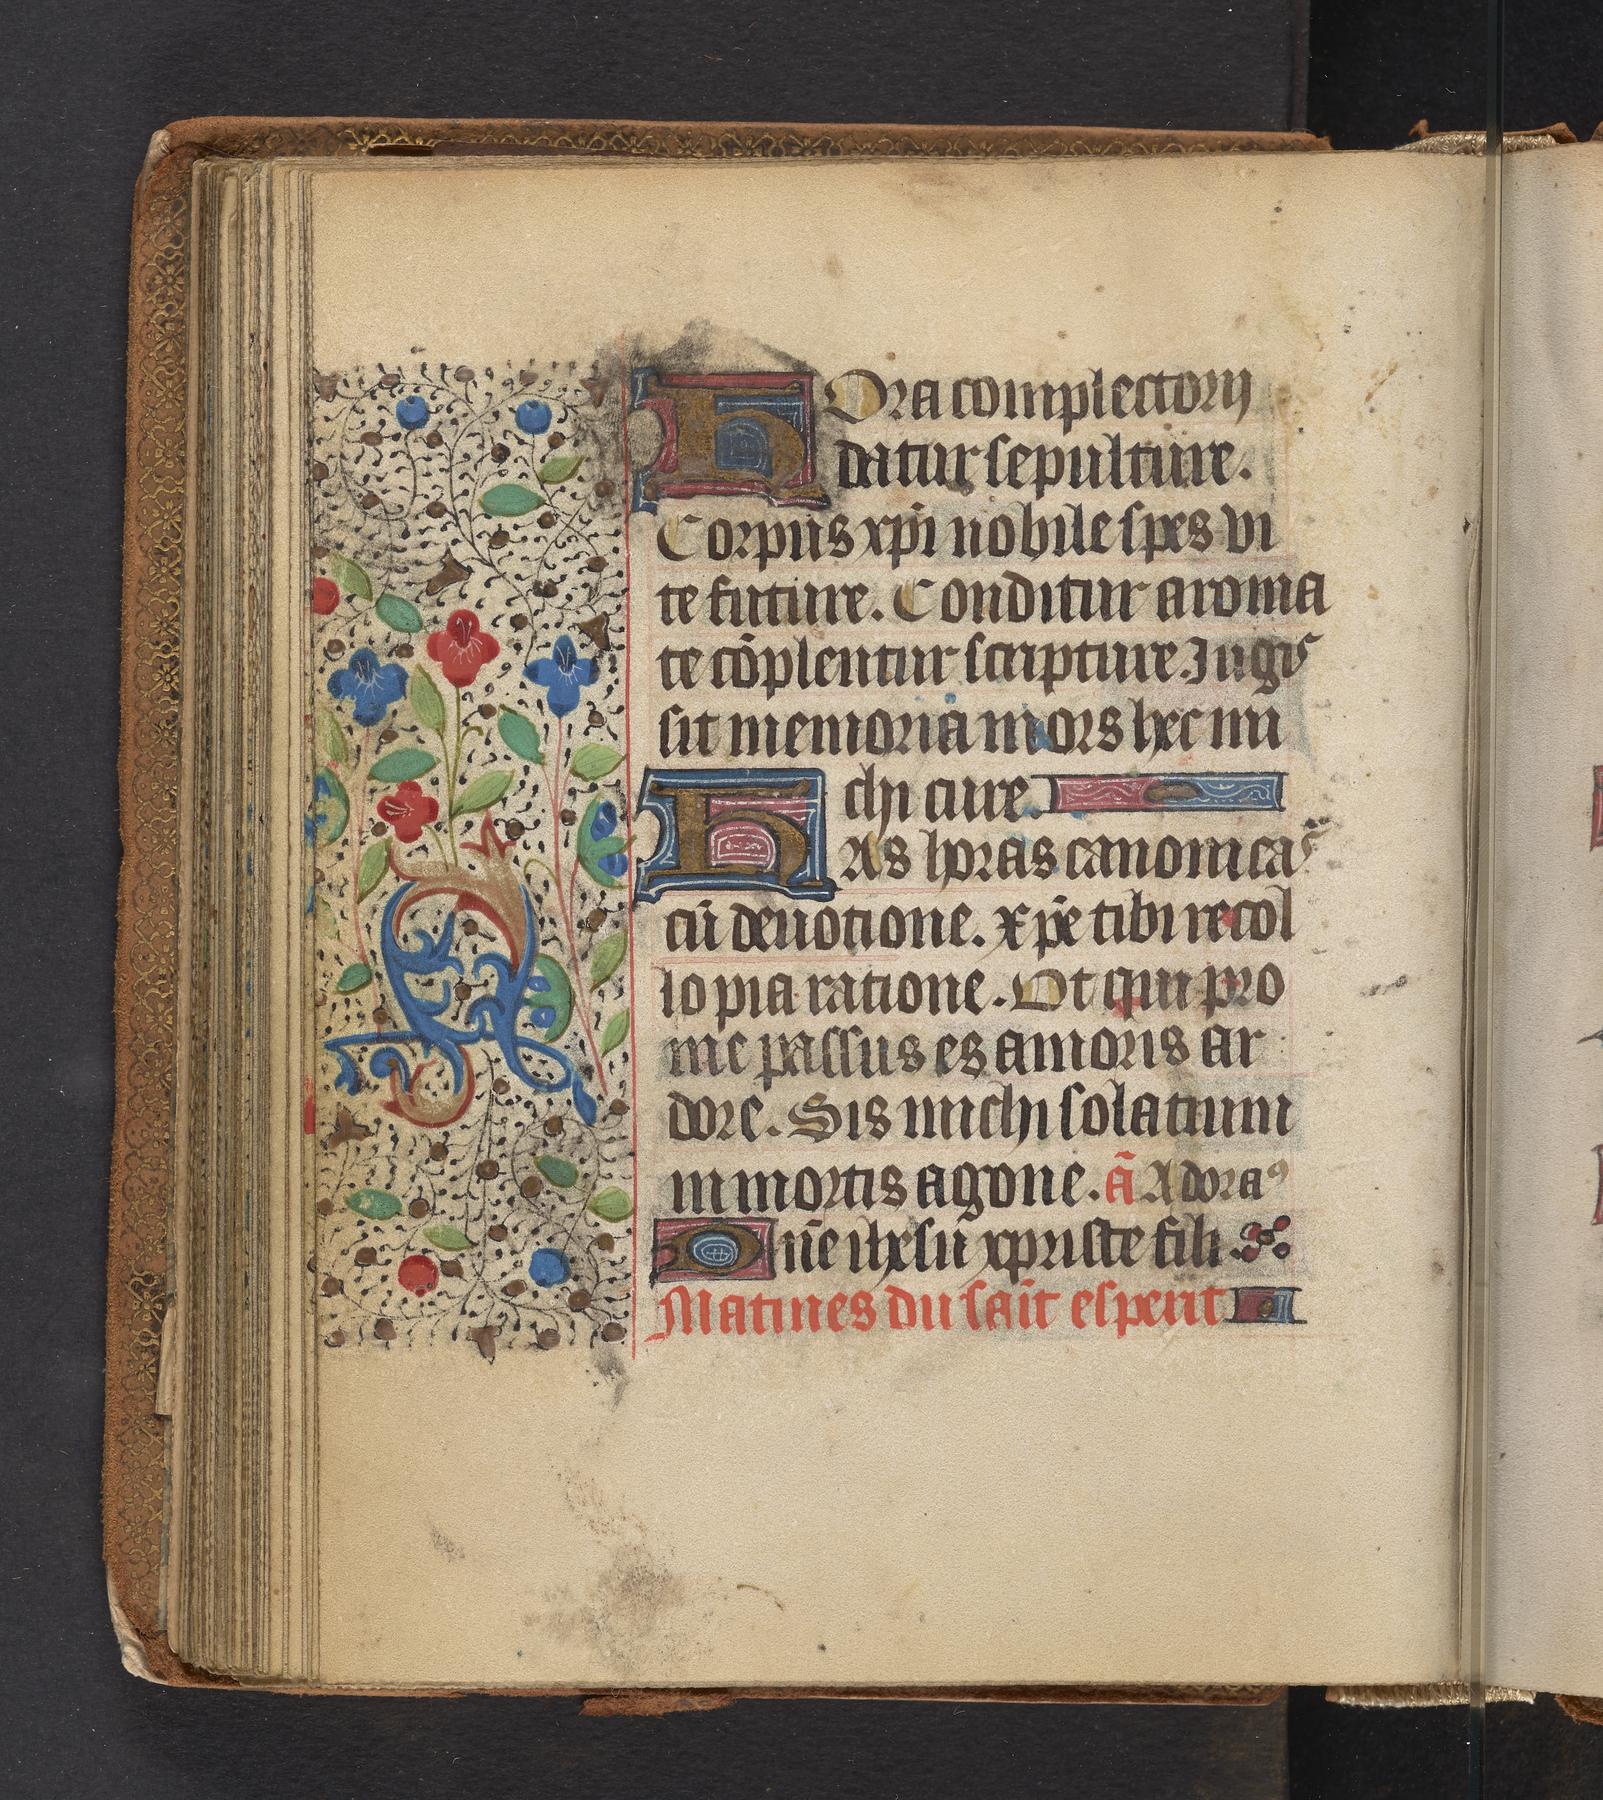 Hora complectorij
datur sepulture.
Corpus xpi nobile spes vi
te future. Conditur aroma
te cõplentur scripture. Jugis
sit memoria mors hec mi
chi cure
Has horas canonicas
cũ deuotione. xp̃e tibi recol
lo pia ratione. Vt qui pro
me passus es amoris ar
dore. Sis michi solatium
in mortis agone. ã Adoraꝰ
Dñe ihesu xpriste fili
Matines du sait esperit